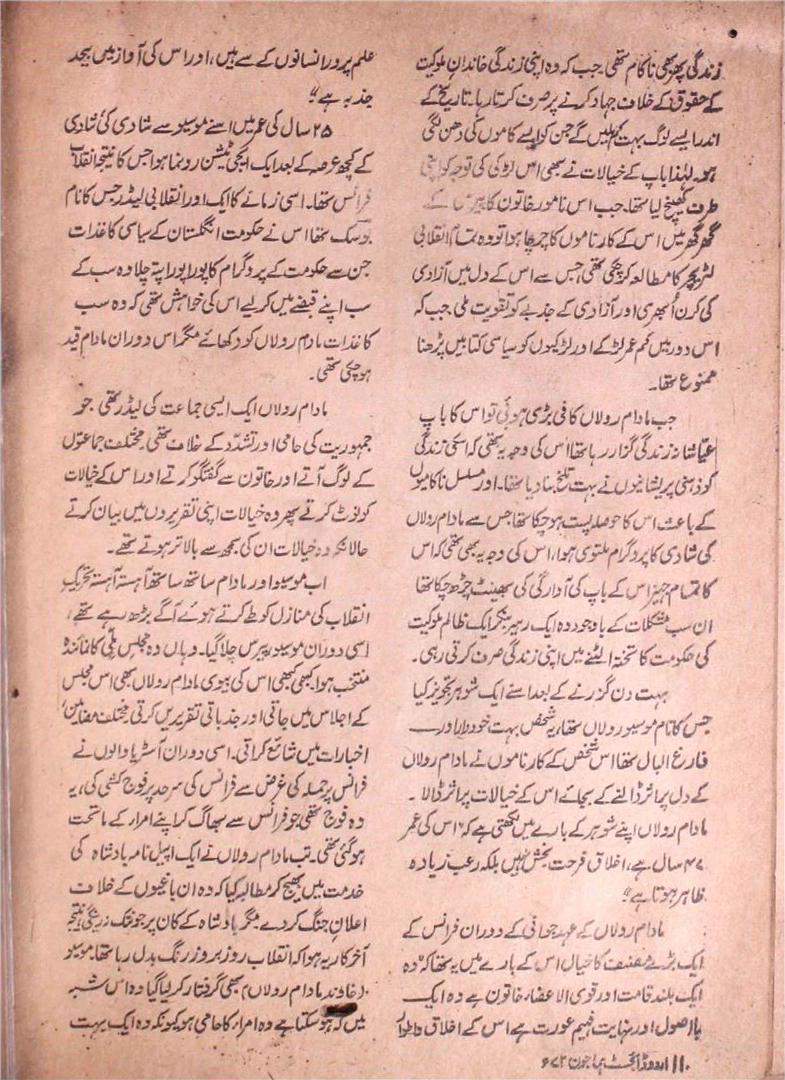 زندگی پھر بھی ناکام تھی۔ جب کہ وہ اپنی زندگی خاندانِ ملوکیت
کے حقوق کے خلاف جہاد کرنے پر صرف کرتا رہا۔ تاریخ کے
اندر ایسے لوگ بہت کم ملیں گے جن کو ایسے کاموں کی دھن لگی
ہو۔ لہٰذا باپ کے خیالات نے بھی اس لڑکی کی توجہ کو اپنی
طرف کھینچ لیا تھا۔ جب اس نامور خاتون کا پیرس کے
گھر گھر میں اس کے کارناموں کا چرچا ہوا تو وہ تمام انقلابی
لٹریچر کا مطالعہ کر چکی تھی جس سے اس کے دل میں آزادی
کی کرن اُبھری اور آزادی کے جذبے کو تقویت ملی جب کہ
اس دور میں کم عمر لڑکے اور لڑکیوں کو سیاسی کتابیں پڑھنا
ممنوع تھا۔
جب مادام رولاں کافی بڑی ہوئی تو اس کا باپ
عیّاشانہ زندگی گزار رہا تھا اس کی وجہ یہ تھی کہ اسکی زندگی
کو ذہنی پریشانیوں نے بہت تلخ بنا دیا تھا۔ اور مسلسل ناکامیوں
کے باعث اس کا حوصلہ پست ہو چکا تھا جس سے مادام رولاں
کی شادی کا پروگرام ملتوی ہوا، اس کی وجہ یہ بھی تھی کہ اس
کا تمام جہیز اس کے باپ کی آوارگی کی بھینٹ چڑھ چکا تھا
ان سب مشکلات کے باوجود وہ ایک رہبر بنکر ایک ظالم ملوکیت
کی حکومت کا تختہ الٹنے میں اپنی زندگی صرف کرتی رہی۔
بہت دن گزرنے کے بعد اسنے ایک شوہر تجویز کیا
جس کا نام موسیو رولاں تھا، یہ شخص بہت خوددار اور
فارغ البال تھا اس شخص کے کارناموں نے مادام رولاں
کے دل پر اثر ڈالنے کے بجائے اس کے خیالات پر اثر ڈالا۔
مادام رولاں اپنے شوہر کے بارے میں لکھتی ہے کہ "اس کی عمر
۴۷ سال ہے، اخلاق فرحت بخش نہیں بلکہ رعب زیادہ
ظاہر ہوتا ہے"
مادام رولاں کے عہد جوانی کے دوران فرانس کے
ایک بڑے مصنف کا خیال اس کے بارے میں یہ تھا کہ "وہ
ایک بلند قامت اور قوی الاعضاء خاتون ہے وہ ایک
بااصول اور نہایت فہیم عورت ہے اس کے اخلاق و اطوار
علم پرور انسانوں کے سے ہیں، اور اس کی آواز میں بیحد
جذبہ ہے"
۲۵ سال کی عمر میں اسنے موسیو سے شادی کی شادی
کے کچھ عرصہ کے بعد ایک ایجی ٹیشن رونما ہوا جس کا نتیجہ انقلاب
فرانس تھا۔ اسی زمانے کا ایک اور انقلابی لیڈر جس کا نام
بوسک تھا اس نے حکومت انگلستان کے سیاسی کاغذات
جن سے حکومت کے پروگرام کا پورا پورا پتہ چلا وہ سب کے
سب اپنے قبضے میں کر لیے اس کی خواہش تھی کہ وہ سب
کاغذات مادام رولاں کو دکھائے مگر اس دوران مادام قید
ہو چکی تھی۔
مادام رولاں ایک ایسی جماعت کی لیڈر تھی جو
جمہوریت کی حامی اور تشدّد کے خلاف تھی۔ مختلف جماعتوں
کے لوگ آتے اور خاتون سے گفتگو کرتے اور اس کے خیالات
کو نوٹ کرتے پھر وہ خیالات اپنی تقریروں میں بیان کرتے
حالانکہ وہ خیالات ان کی سمجھ سے بالاتر ہوتے تھے۔
اب موسیو اور مادام ساتھ ساتھ آہستہ آہستہ تحریک
انقلاب کی منازل کو طے کرتے ہوئے آگے بڑھ رہے تھے،
اسی دوران موسیو پیرس چلا گیا۔ وہاں وہ مجلس ملّی کا نمائندہ
منتخب ہوا کبھی کبھی اس کی بیوی مادام رولاں بھی اس مجلس
کے اجلاس میں جاتی اور جذباتی تقریریں کرتی، مختلف مضامین
اخبارات میں شائع کراتی۔ اسی دوران آسٹریا والوں نے
فرانس پر حملہ کی غرض سے فرانس کی سرحد پر فوج کشی کی، یہ
وہ فوج تھی جو فرانس سے بھاگ کر اپنے امراء کے ماتحت
ہو گئی تھی۔ تب مادام رولاں نے ایک اپیل نامہ بادشاہ کی
خدمت میں بھیج کر مطالبہ کیا کہ وہ ان باغیوں کے خلاف
اعلانِ جنگ کر دے مگر بادشاہ کے کان پر جوں تک نہ رینگی نتیجہ
آخر کار یہ ہوا کہ انقلاب روز بروز رنگ بدل رہا تھا۔ موسیو
(خاوند مادام رولاں) بھی گرفتار کر لیا گیا وہ اس شبہ
میں کہ ہو سکتا ہے وہ امراء کا حامی ہو کیونکہ وہ ایک بہت
۱۱۰ اردو ڈائجسٹ ہما جون ۷۲ء